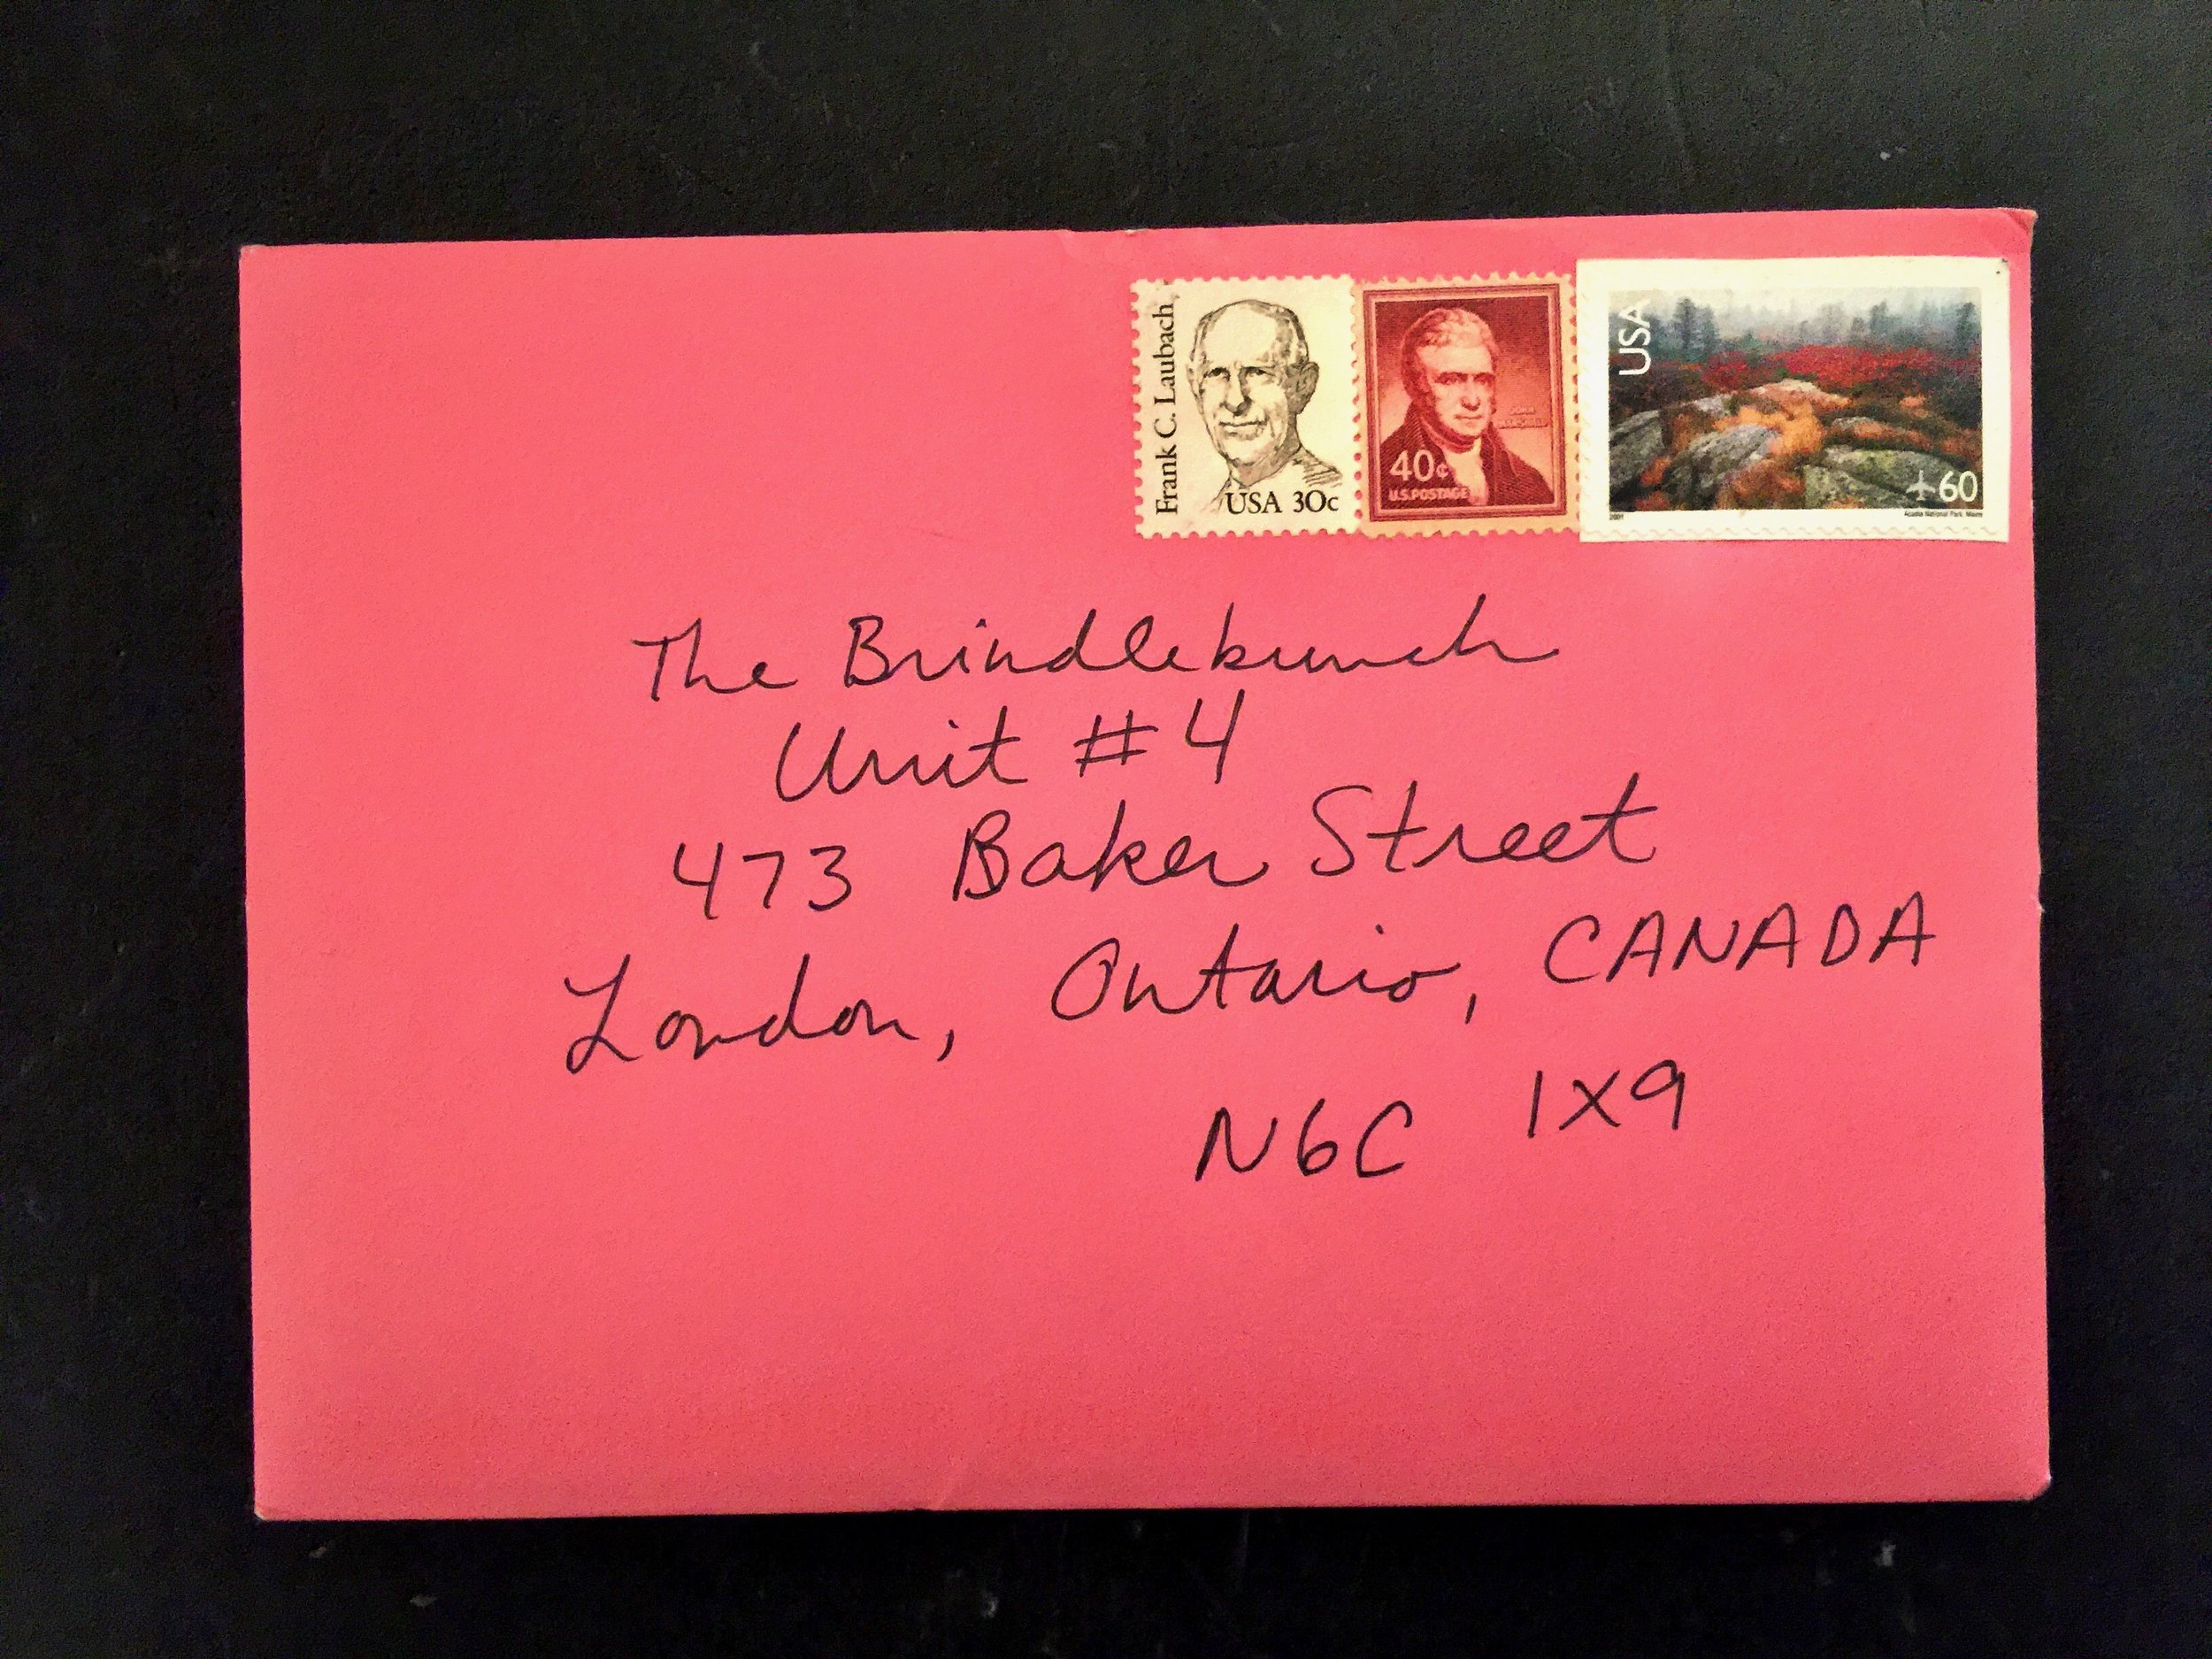 Frank C. Laubach
USA 30c
40¢
U.S.POSTAGE
USA
60
2001
Acadia National Park, Maine
The Brindlebunch
Unit #4
473 Baker Street
London, Ontario, CANADA
N6C 1X9